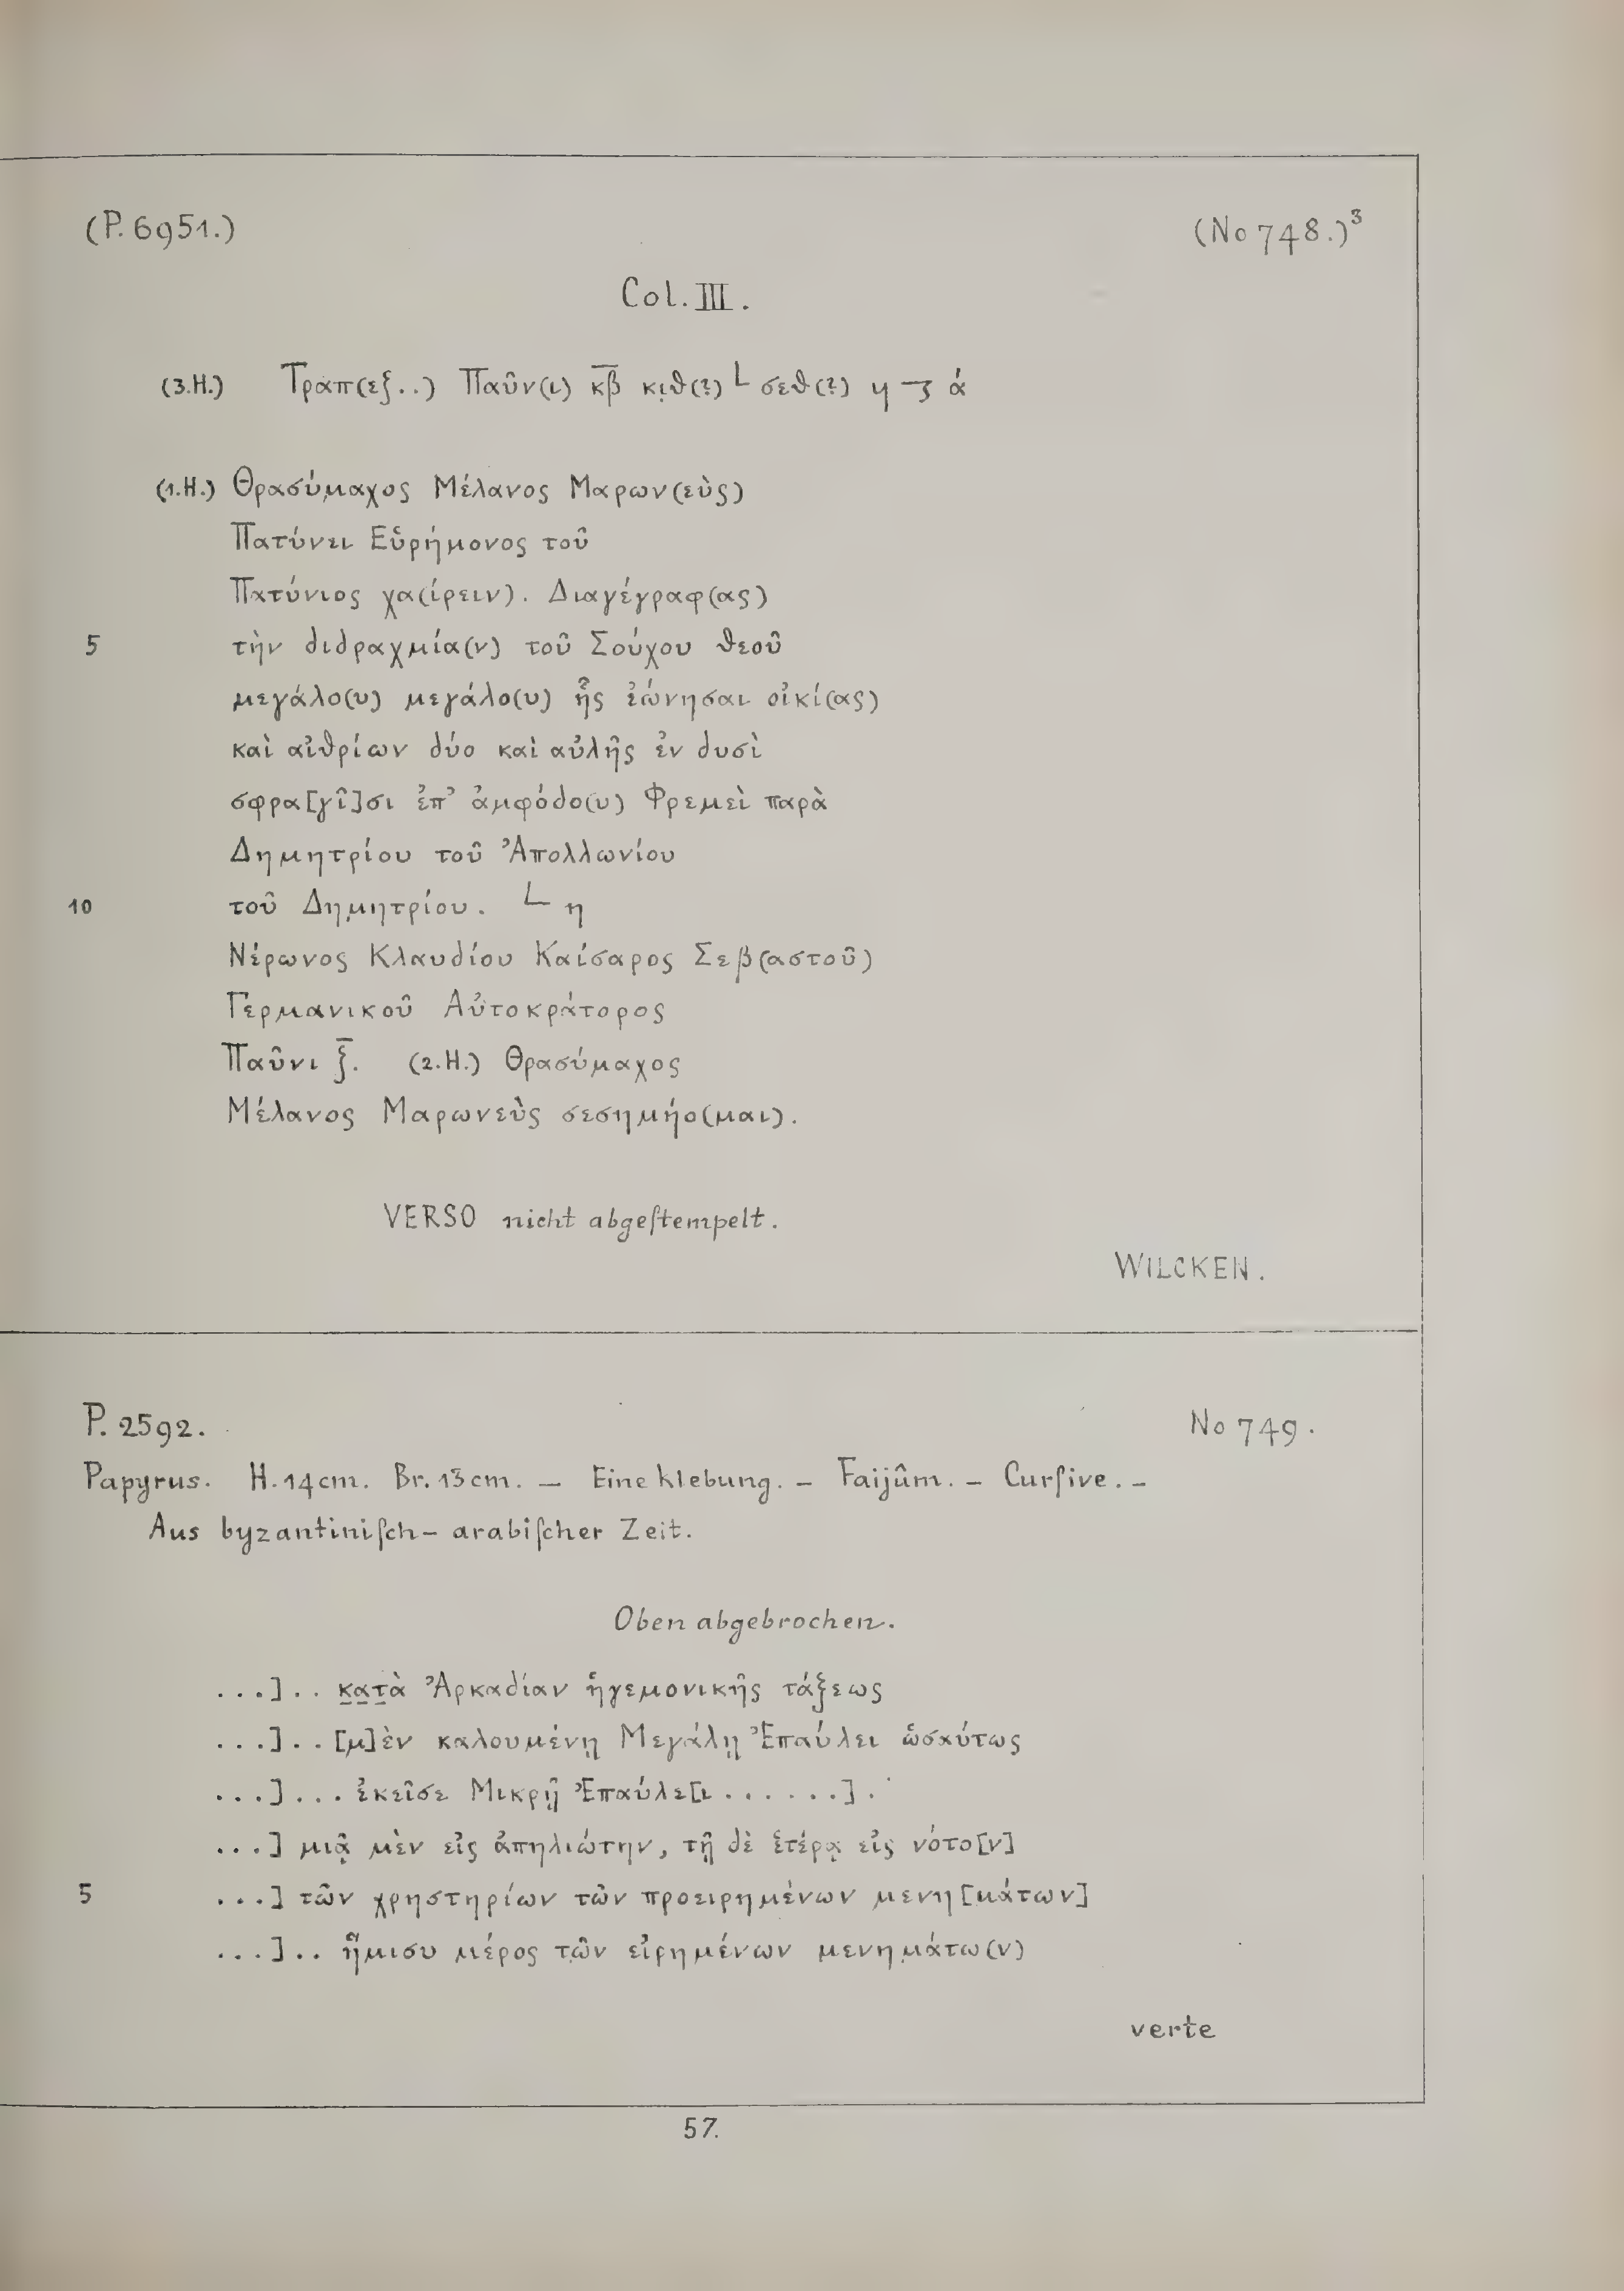 (P. 6951.)
(No 748.)³
Col. III.
(3.H.) Τραπ(εξ..) Παῦν(ι) κ̅β̅ κι̣θ(?) L σεθ(?) η ά
(1.H.) Θρασύμαχος Μέλανος Μαρων(εὺς)
Πατύνει Εὑρήμονος τοῦ
Πατύνιος χα(ίρειν). Διαγέγραφ(ας)
5 τὴν διδραχμία(ν) τοῦ Σούχου θεοῦ
μεγάλο(υ) μεγάλο(υ) ἧς ἐώνησαι οἰκί(ας)
καὶ αἰθρίων δύο καὶ αὐλῆς ἐν δυσὶ
σφρα[γῖ]σι ἐπ’ ἀμφόδο(υ) Φρεμεὶ παρὰ
Δημητρίου τοῦ Ἀπολλωνίου
10 τοῦ Δημητρίου. L η
Νέρωνος Κλαυδίου Καίσαρος Σεβ(αστοῦ)
Γερμανικοῦ Αὐτοκράτορος
Παῦνι ξ̅. (2.H.) Θρασύμαχος
Μέλανος Μαρωνεὺς σεσημήο(μαι).
VERSO nicht abgeſtempelt.
WILCKEN.
P. 2592.
No 749.
Papyrus. H. 14 cm. Br. 13 cm. – Eine Klebung. – Faijûm. – Curſive. –
Aus byzantiniſch-arabiſcher Zeit.
Oben abgebrochen.
...].. κ̣α̣τ̣ὰ Ἀρκαδίαν ἡγεμονικῆς τάξεως
...].. [μ]ὲν καλουμένῃ Μεγάλῃ Ἐπαύλει ὡσαύτως
...]... ἐκεῖσε Μικρῇ Ἐπαύλε[ι ......].
...] μιᾷ μὲν εἰς ἀπηλιώτην, τῇ δὲ ἑτέρᾳ εἰς νότο[ν]
5 ...] τῶν χρηστηρίων τῶν προειρημένων μενη[μάτων]
...].. ἥμισυ μέρος τῶν εἰρημένων μενημάτω(ν)
verte
57.